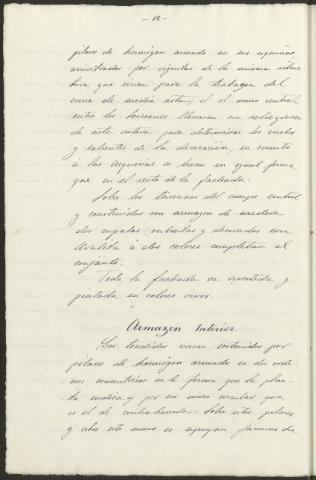 - 12 -
pilares de hormigon armado en sus esquinas
arriostrados por viguetas de la misma estruc
tura que sirven para la trabazon del
cierre de media asta; el muro central
entre los torreones llevaran un
de asta entera para determinar los vuelos
y salientes de la decoración, en cuanto
á las arquerias se hacen en igual forma
que en el resto de la fachada.
Sobre los torreones del cuerpo central
y construidas con armazon de madera
dos cupulas cubiertas y decoradas con
Uralita á dos colores completan el
conjunto.
Toda la fachada va revestida y
pintada en colores vivos.
Armazon Interior
Los tendidos vienen sostenidos por
pilares de hormigon armado en dos orde-
nes concentricos en la forma que la plan-
ta indica y por un muro circular que
es el de contrabarrera. Sobre estos pilares
y sobre este muro se apoyan jacenas de